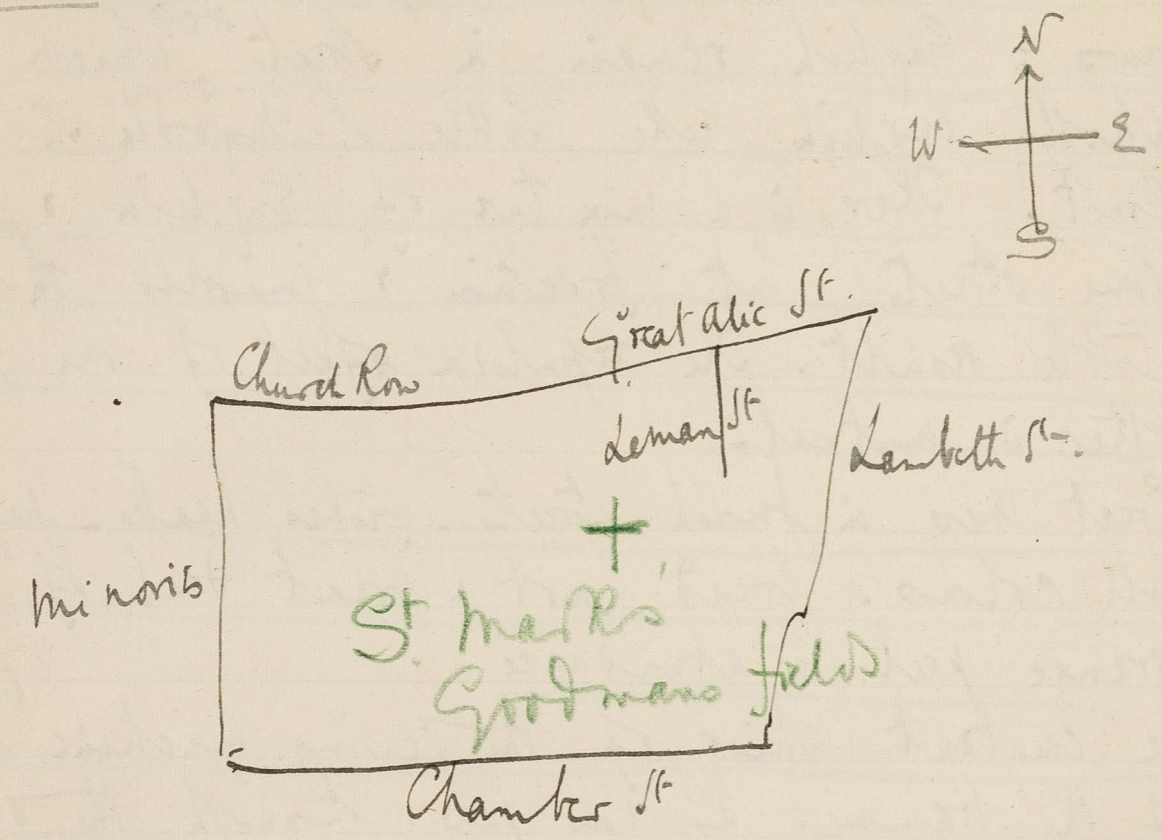 N
W E
S
Great Alie St.
Church Row
Leman St
Lambeth St.
Minories
St. Mark's
Goodmans fields
Chamber St